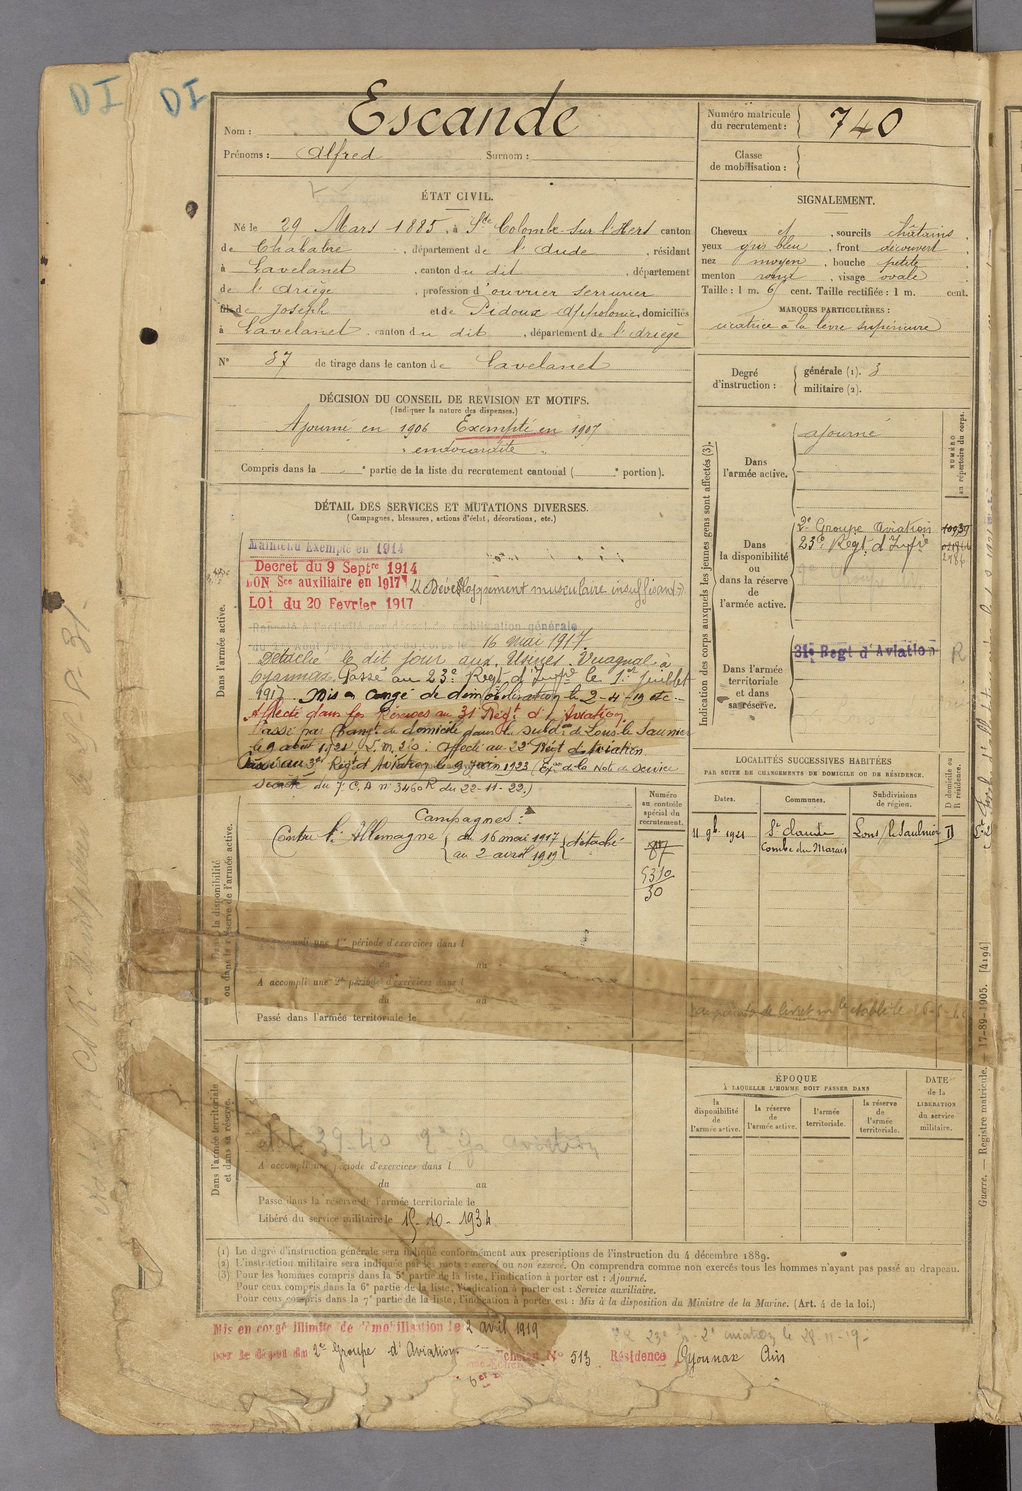 DI
DI
Nom : Escande
Prénoms : Alfred Surnom :
Numéro matricule du recrutement : 740
Classe de mobilisation :
ÉTAT CIVIL.
Né le 29 Mars 1885, à Ste Colombe sur l'Hers canton
de Chalabre, département de l'Aude, résidant
à Lavelanet, canton du dit, département
de l'Ariège, profession d'ouvrier serrurier
fils de Joseph et de Pidoux Appolonie, domiciliés
à Lavelanet, canton du dit, département de l'Ariège
N° 87 de tirage dans le canton de Lavelanet
SIGNALEMENT.
Cheveux et, sourcils châtains
yeux gris bleu, front découvert
nez moyen, bouche petite
menton rond, visage ovale
Taille : 1 m. 6 cent. Taille rectifiée : 1 m. cent.
MARQUES PARTICULIÈRES :
cicatrice à la lèvre supérieure
Degré d'instruction : générale (1). 3
militaire (2).
DÉCISION DU CONSEIL DE REVISION ET MOTIFS.
(Indiquer la nature des dispenses.)
Ajourné en 1906 Exempté en 1907
endocardite
Compris dans la e partie de la liste du recrutement cantonal ( e portion).
DÉTAIL DES SERVICES ET MUTATIONS DIVERSES.
(Campagnes, blessures, actions d'éclat, décorations, etc.)
Dans l'armée active.
Maintenu Exempté en 1914
Decret du 9 Septre 1914
BON Sce auxiliaire en 1917 Développement musculaire insuffisant
LOI du 20 Fevrier 1917
Rappelé à l'activité par décret de mobilisation générale
16 mai 1917.
Détaché le dit jour aux Usines à
Oyonnax Passé au 23e Régt d'Infie le 1er juillet
1917. Mis en congé de démobilisation le 2-4-19 etc
Affecté dans les Réserves au 31 Régt d'Aviation
Passé par changt de domicile dans la subdon de Lons le Saunier
le 9 août 1921. Affecté au 33e Régt d'Aviation
Passé au 3e Régt d'Aviation le 9 juin 1923 (Exon de la Note de Service
Secrète du 7e C.A n° 3460R du 22-11-22.)
Indication des corps auxquels les jeunes gens sont affectés (3).
NUMÉRO au répertoire du corps.
Dans l'armée active.
ajourné
Dans la disponibilité ou dans la réserve de l'armée active.
2e Groupe Aviation
23e Régt d'Infie
Dans l'armée territoriale et dans sa réserve.
31e Regt d'Aviation
R
Dans la disponibilité ou dans la réserve de l'armée active.
Campagnes :
Contre l'Allemagne du 16 mai 1917 au 2 avril 1919 détaché
Numéro au contrôle spécial du recrutement.
87
5310
30
A accompli une 1re période d'exercices dans l
du au
A accompli une 2e période d'exercices dans l
du au
Passé dans l'armée territoriale le
LOCALITÉS SUCCESSIVES HABITÉES
PAR SUITE DE CHANGEMENTS DE DOMICILE OU DE RÉSIDENCE.
Dates. Communes. Subdivisions de région. D domicile ou R résidence.
11 9b 1921 St Claude Lons le Saulnier D
Combe du Marais
ÉPOQUE
À LAQUELLE L'HOMME DOIT PASSER DANS
la disponibilité de l'armée active. la réserve de l'armée active. l'armée territoriale. la réserve de l'armée territoriale.
DATE de la LIBÉRATION du service militaire.
Dans l'armée territoriale et dans sa réserve.
39-40 2e Gr aviation
A accompli une période d'exercices dans l
du au
Passé dans la réserve de l'armée territoriale le
Libéré du service militaire le 15-10-1934
(1) Le degré d'instruction générale sera indiqué conformément aux prescriptions de l'instruction du 4 décembre 1889.
(2) L'instruction militaire sera indiquée par les mots : exercé ou non exercé. On comprendra comme non exercés tous les hommes n'ayant pas passé au drapeau.
(3) Pour les hommes compris dans la 5e partie de la liste, l'indication à porter est : Ajourné.
Pour ceux compris dans la 6e partie de la liste, l'indication à porter est : Service auxiliaire.
Pour ceux compris dans la 7e partie de la liste, l'indication à porter est : Mis à la disposition du Ministre de la Marine. (Art. 4 de la loi.)
Mis en congé illimité de démobilisation le 2 avril 1919
par le dépôt du 2e Groupe d'Aviation échelon N° 513 Résidence Oyonnax Ain
23e Gr 2e aviation le 28-11-19-
Guerre. — Registre matricule. — 17-89-1905. [4194]